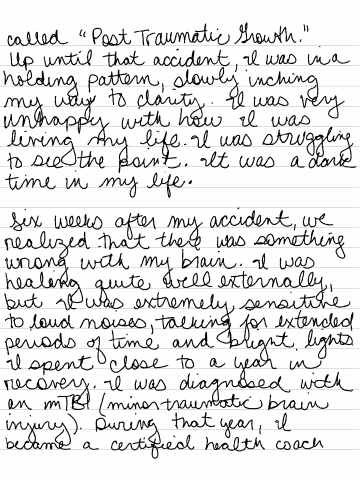 called "Post Traumatic Growth."
Up until that accident, I was in a
holding pattern, slowly inching
my way to clarity. I was very
unhappy with how I was
living my life. I was struggling
to see the point. It was a dark
time in my life.
Six weeks after my accident, we
realized that there was something
wrong with my brain. I was
healing quite well externally,
but I was extremely sensitive
to loud noises, talking for extended
periods of time and bright lights
I spent close to a year in
recovery. I was diagnosed with
an mTBI (minor traumatic brain
injury). During that year, I
became a certified health coach